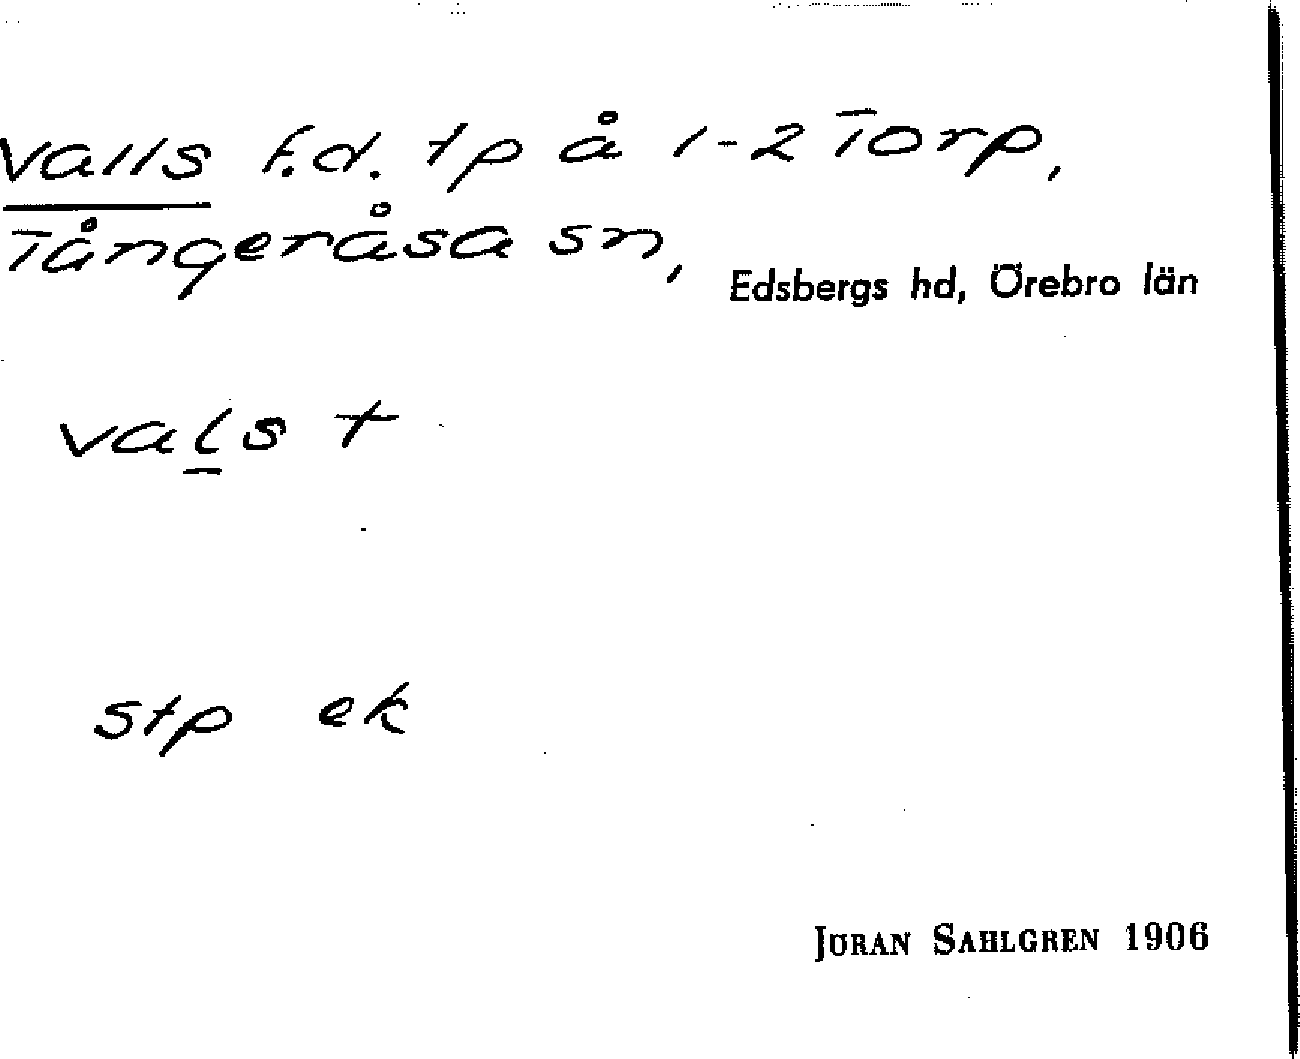 Valls f.d. tp å 1-2 Torp,
Tångeråsa sn, Edsbergs hd, Örebro län
vals t
stp ek
JÖRAN SAHLGREN 1906